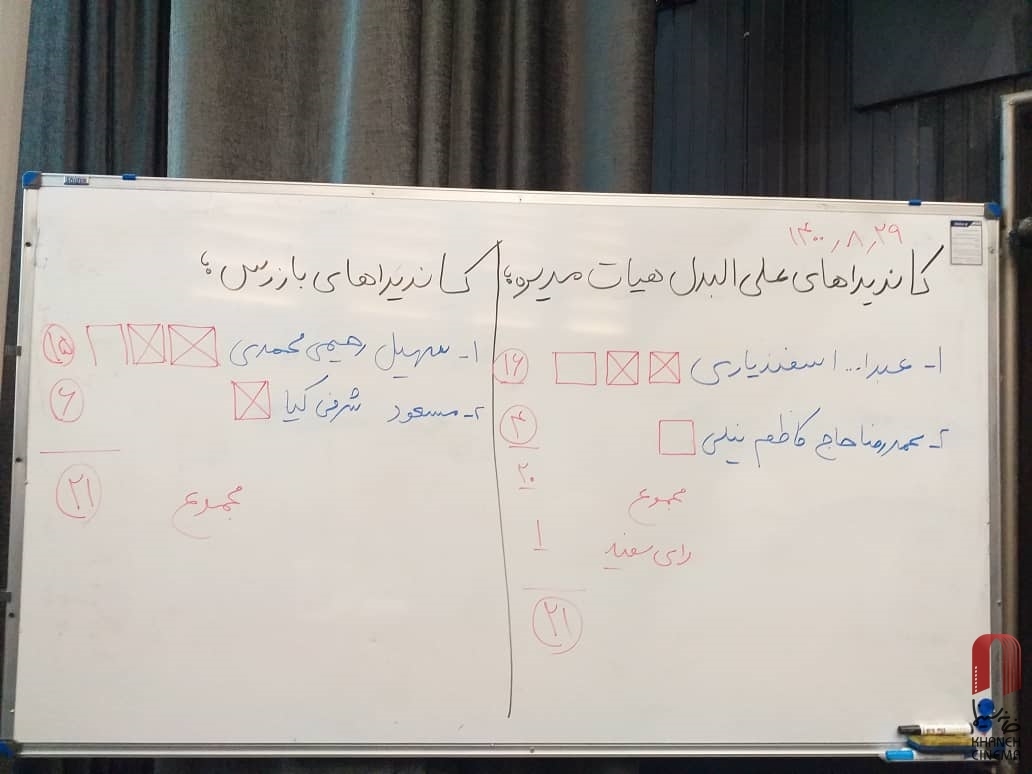 ۱۴۰۰/۸/۲۹
کاندیداهای علی البدل هیات مدیره؛
۱- عبدا... اسفندیاری ۱۶
۲- محمدرضا حاج کاظم نیلی ۴
مجموع ۲۰
رای سفید ۱
۲۱
کاندیداهای بازرس؛
۱- سهیل رحیمی محمدی ۱۵
۲- مسعود شرفی کیا ۶
مجموع ۲۱
خانه سینما
KHANEH
CINEMA